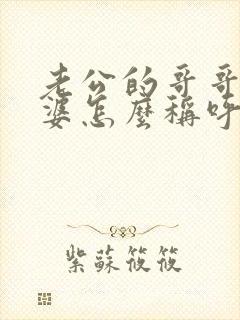 老公的哥哥
婆怎麼稱呼
紫蘇筱筱